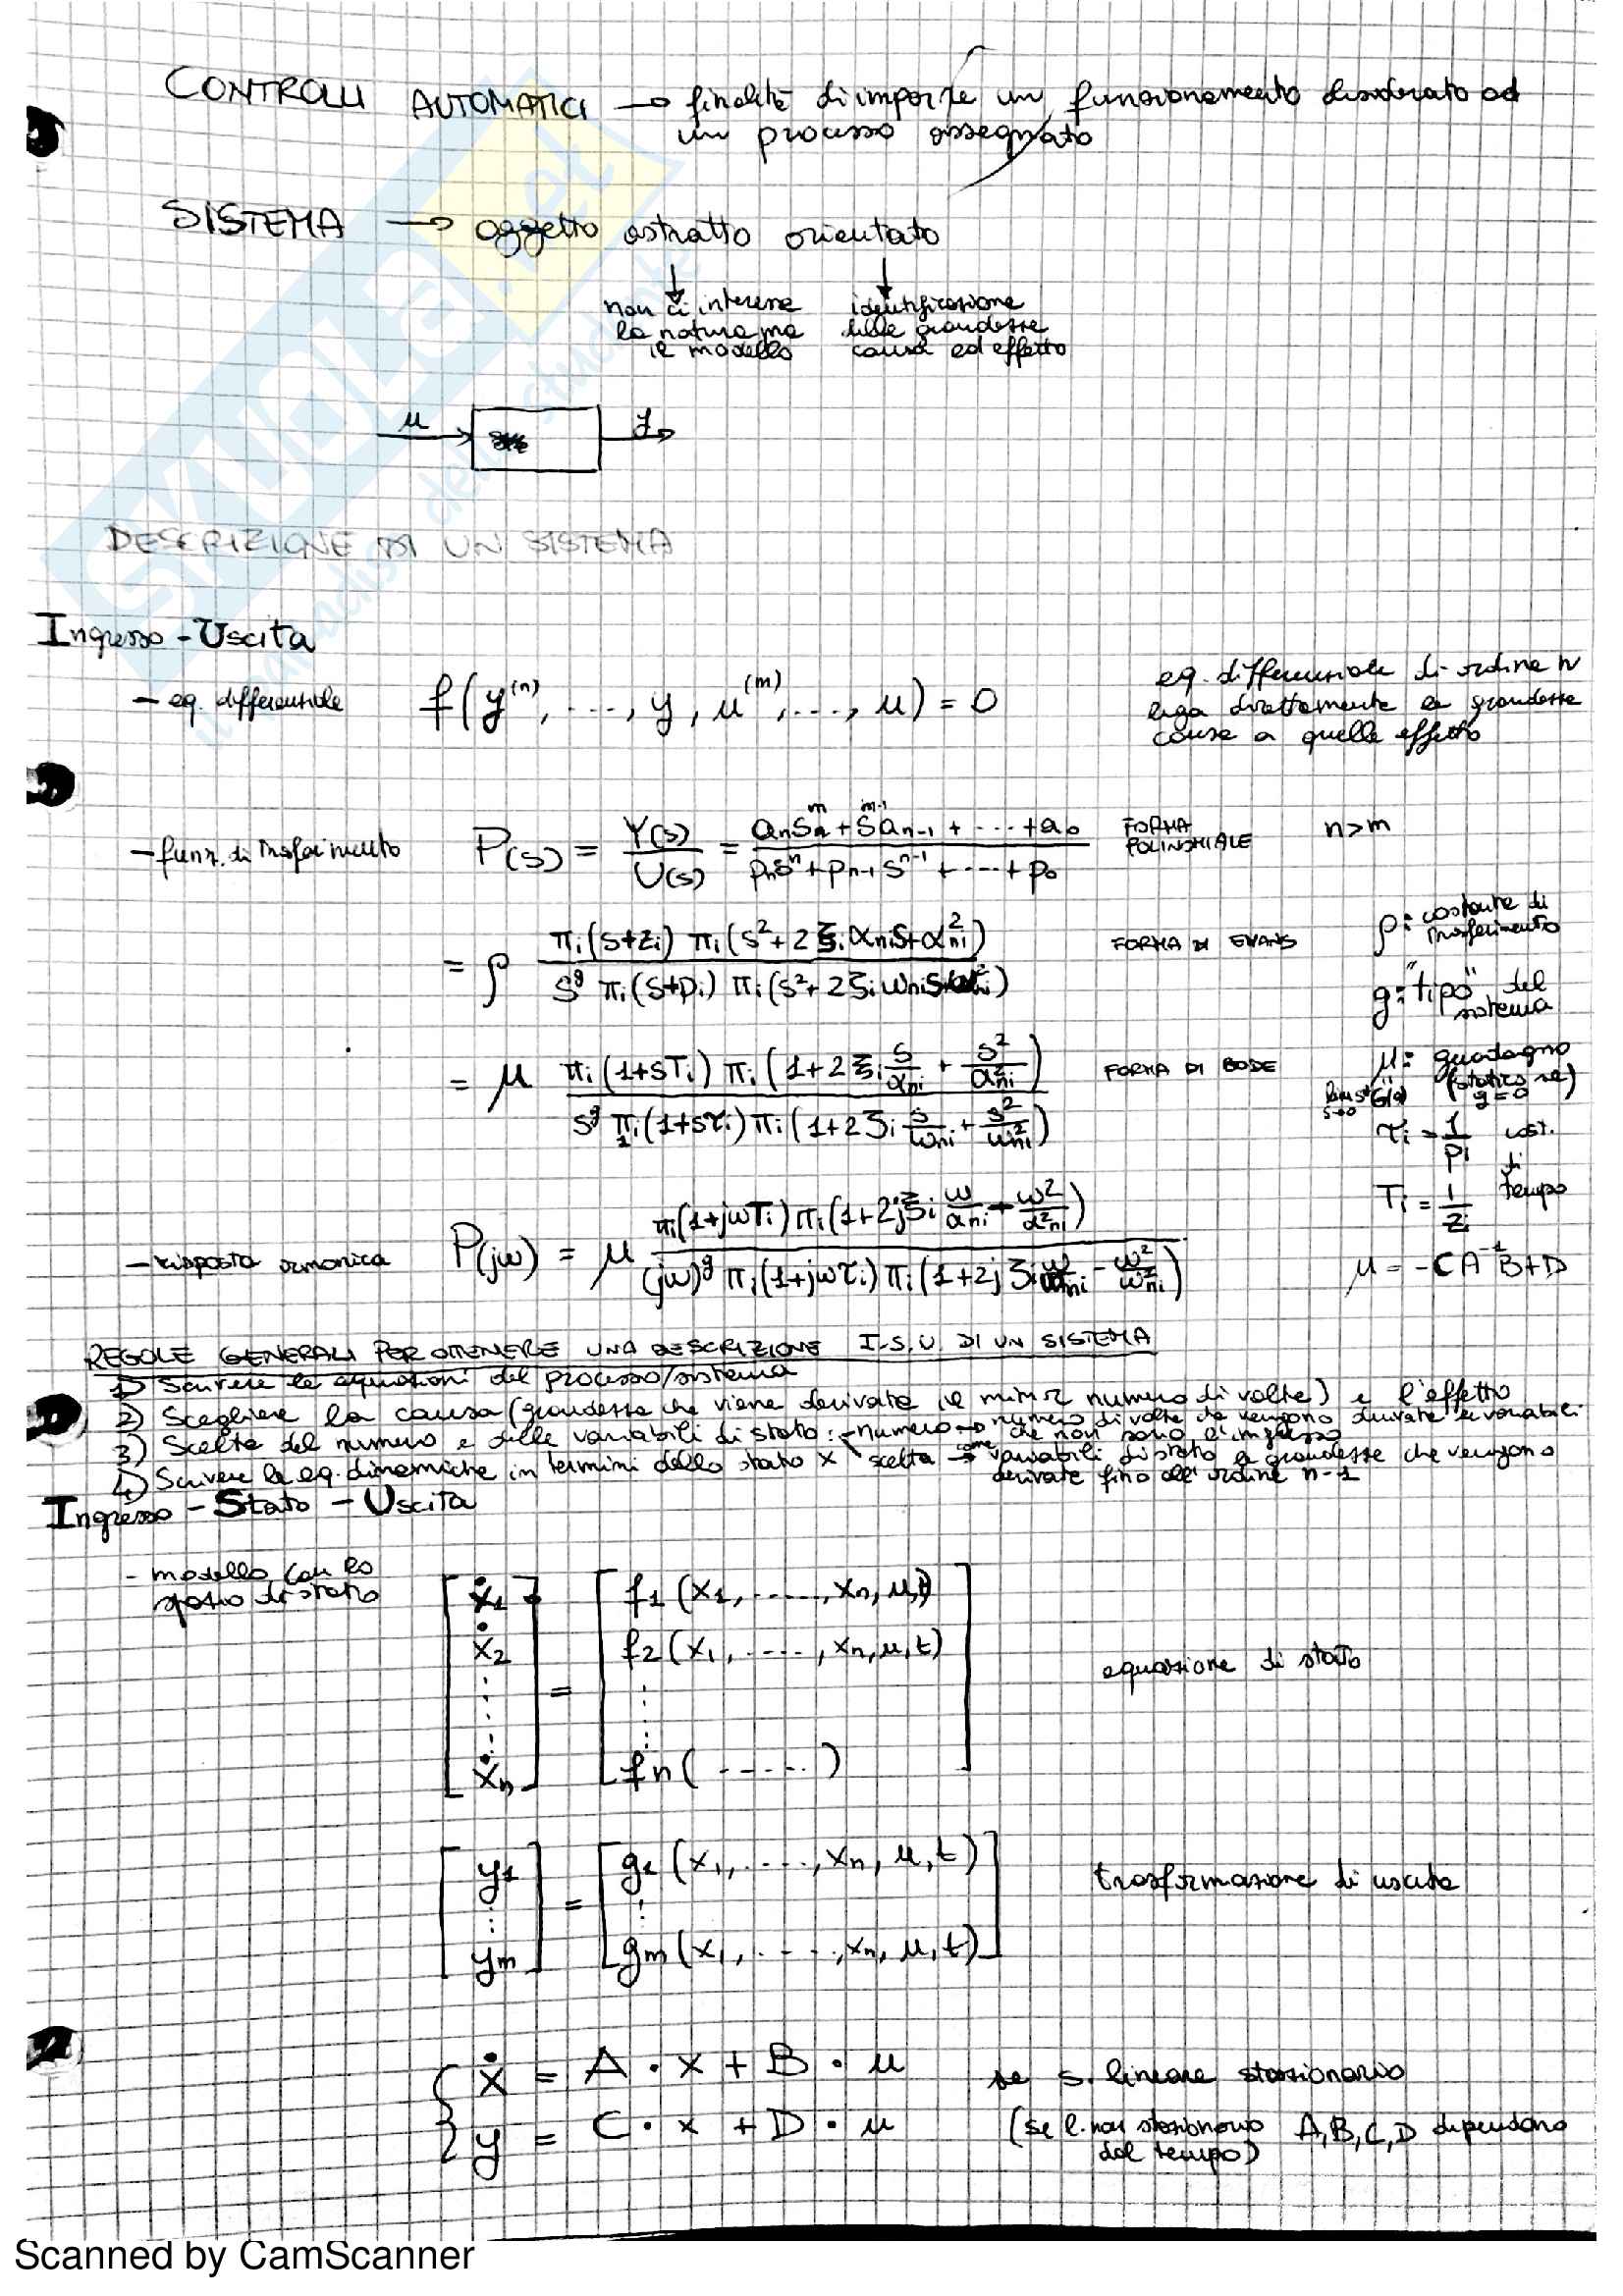 CONTROLLI AUTOMATICI → finalità di imporre un funzionamento desiderato ad
un processo assegnato
SISTEMA → oggetto astratto orientato
non ci interessa
la natura ma
il modello
identificazione
delle grandezze
causa ed effetto
u
y
DESCRIZIONE DI UN SISTEMA
Ingresso - Uscita
- eq. differenziale f(y^(n), ..., y, u^(m), ..., u) = 0
eq. differenziale di ordine n
lega direttamente le grandezze
causa a quelle effetto
- funz. di trasferimento P(s) = Y(s)/U(s) = (a_n s^m + s^(m-1) a_(n-1) + ... + a_0)/(p_n s^n + p_(n-1) s^(n-1) + ... + p_0) FORMA POLINOMIALE n>m
= ρ π_i(s+z_i) π_i(s² + 2ξ_i α_ni s + α²_ni) / s^g π_i(s+p_i) π_i(s² + 2ζ_i ω_ni s + ω²_ni) FORMA DI EVANS
ρ: costante di trasferimento
g: "tipo" del sistema
= μ π_i(1+sT_i) π_i(1 + 2ξ_i s/α_ni + s²/α²_ni) / s^g π_i(1+sτ_i) π_i(1 + 2ζ_i s/ω_ni + s²/ω²_ni) FORMA DI BODE
μ: guadagno
(statico se g=0)
lim s→0 s^g G(s)
τ_i = 1/p_i cost. di tempo
T_i = 1/z_i
- risposta armonica P(jω) = μ π_i(1+jωT_i) π_i(1 + 2jξ_i ω/α_ni - ω²/α²_ni) / (jω)^g π_i(1+jωτ_i) π_i(1 + 2jζ_i ω/ω_ni - ω²/ω²_ni)
μ = -CA^-1 B+D
REGOLE GENERALI PER OTTENERE UNA DESCRIZIONE I.S.U. DI UN SISTEMA
1) Scrivere le equazioni del processo/sistema
2) Scegliere la causa (grandezza che viene derivata il minor numero di volte) e l'effetto
3) Scelta del numero e delle variabili di stato: - numero → numero di volte che vengono derivate le variabili
che non sono l'ingresso
scelta → come variabili di stato le grandezze che vengono
derivate fino all'ordine n-1
4) Scrivere le eq. dinamiche in termini dello stato x
Ingresso - Stato - Uscita
- modello con lo
spazio di stato
[ẋ1 ẋ2 ⋮ ẋn] = [f1(x1, ....., xn, u, t) f2(x1, ...., xn, u, t) ⋮ fn(.....)] equazione di stato
[y1 ⋮ ym] = [g1(x1, ...., xn, u, t) ⋮ gm(x1, ...., xn, u, t)] trasformazione di uscita
ẋ = A · x + B · u se s. lineare stazionario
y = C · x + D · u (se l. non stazionario A, B, C, D dipendono
dal tempo)
Scanned by CamScanner
SKUOLA.net
il paradiso dello studente